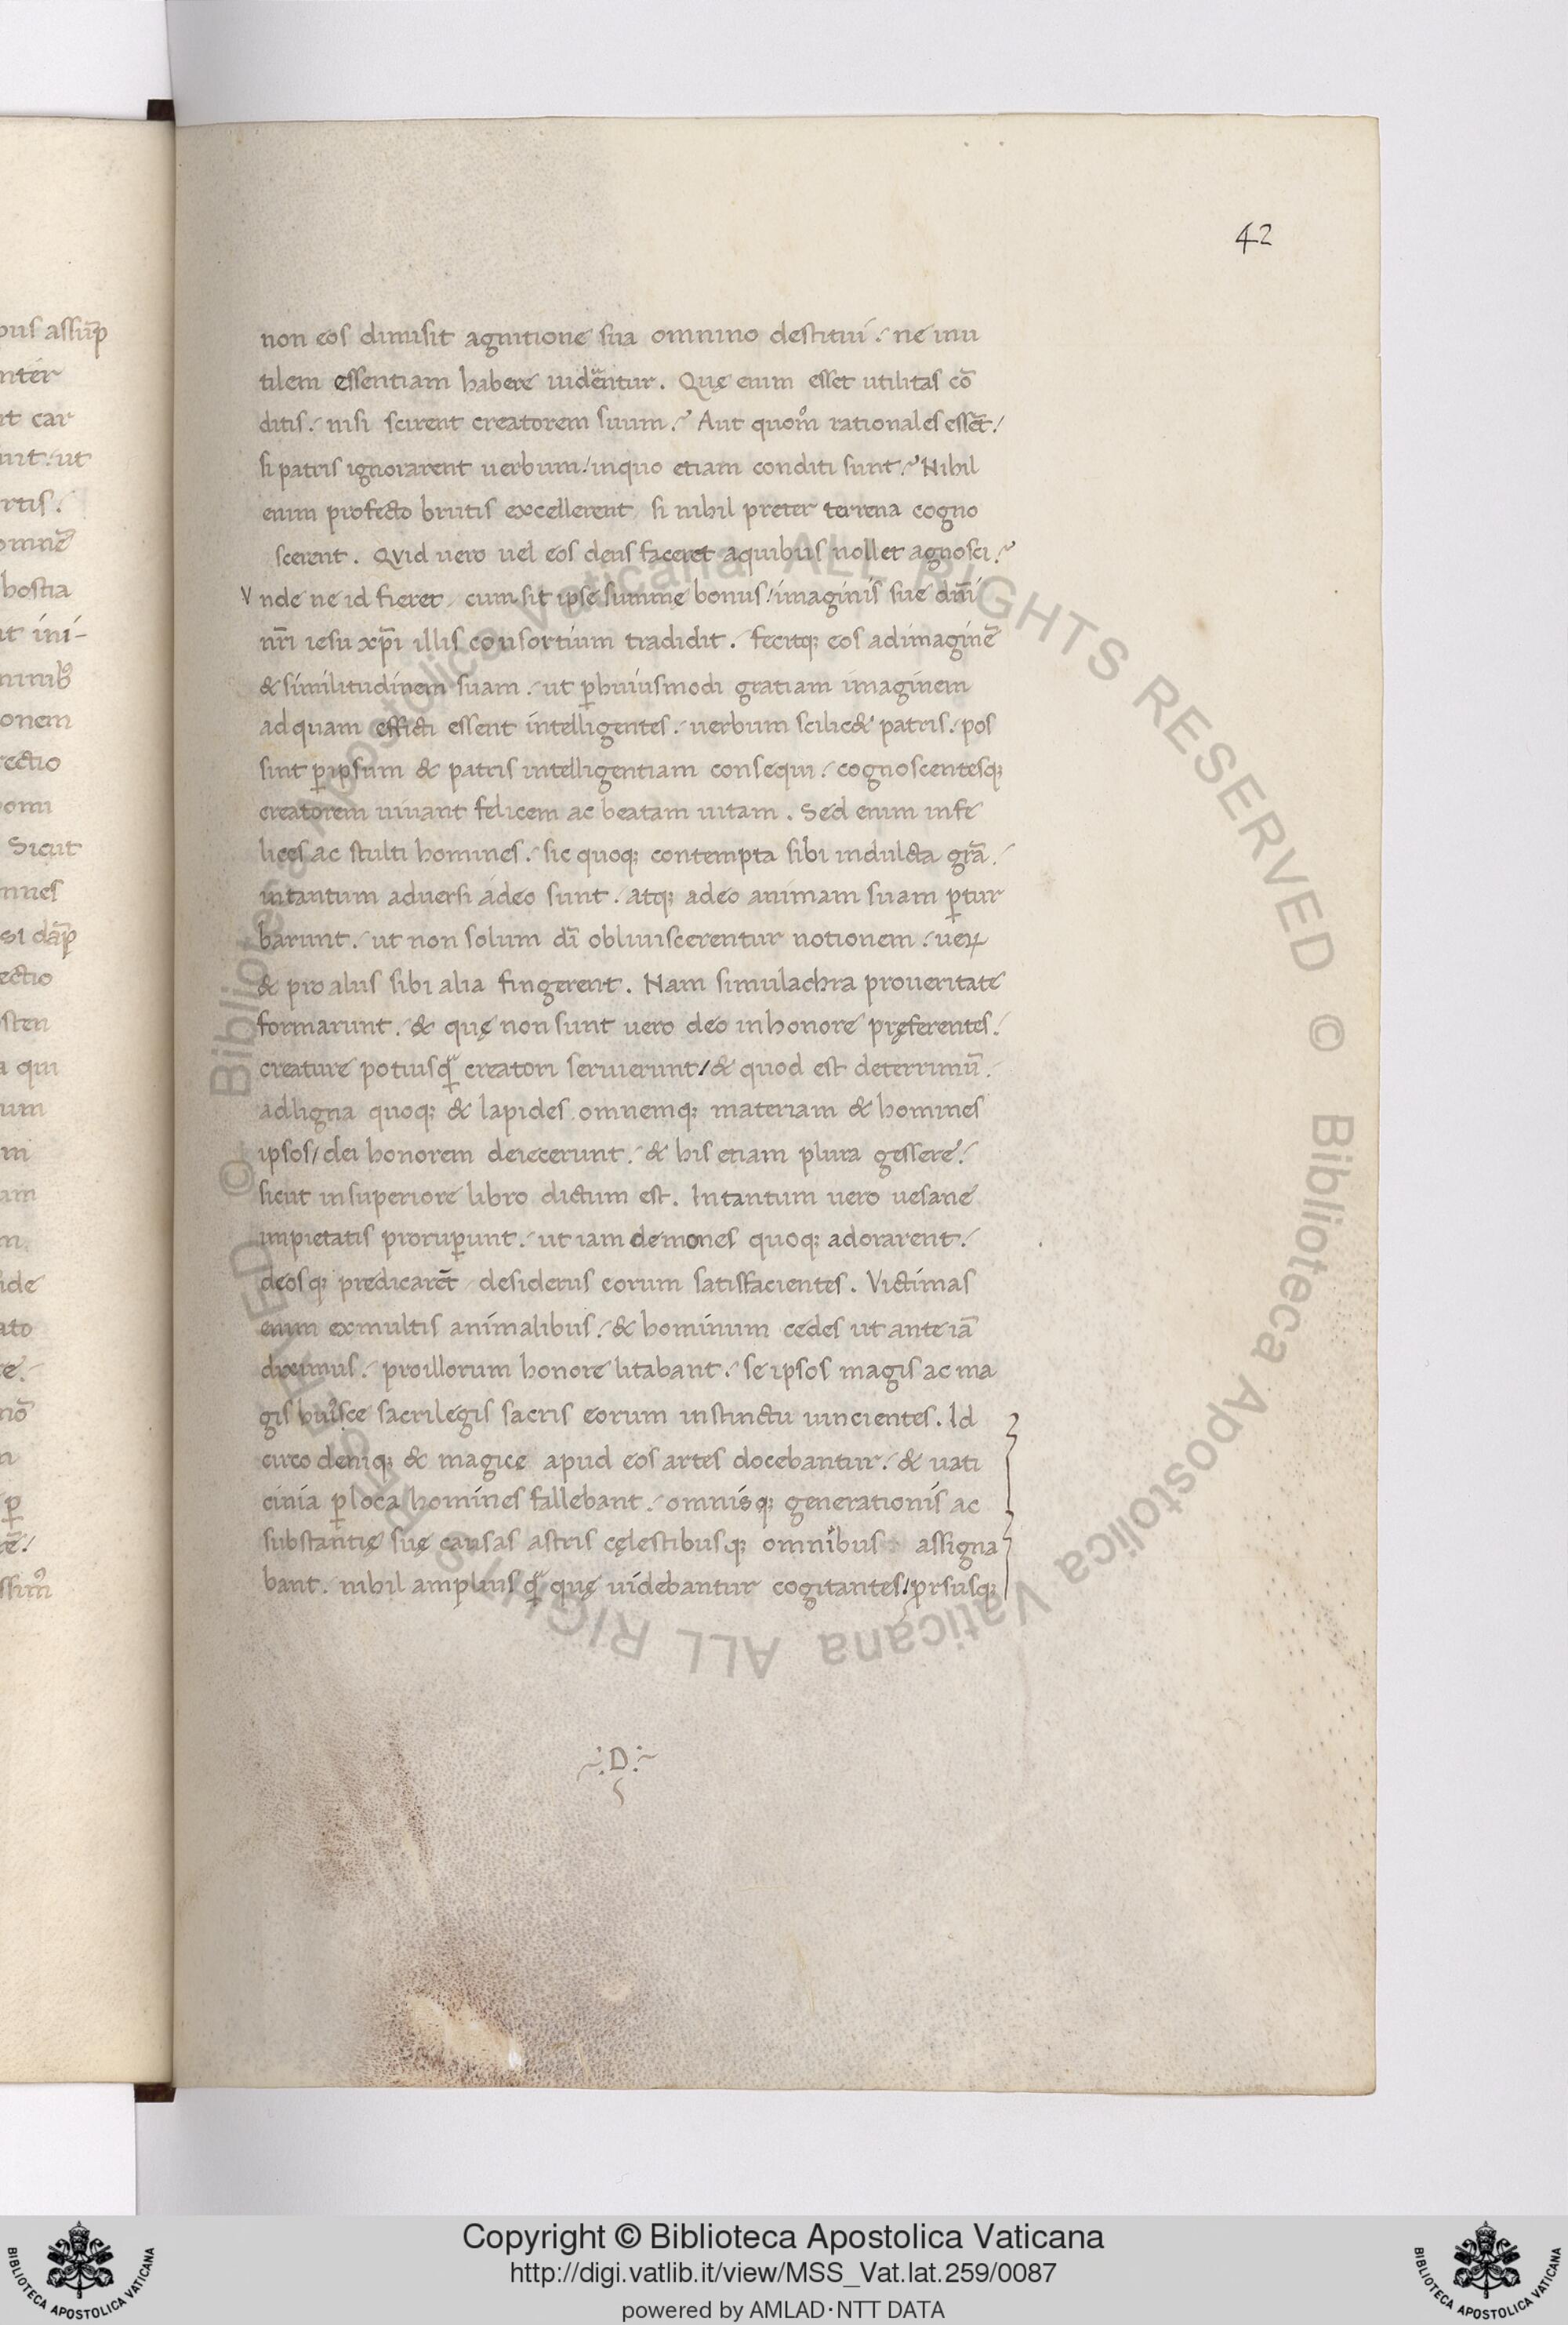 42
non eos dimisit agnitione sua omnino destitui. ne inu
tilem essentiam habere uidẽntur. Quę enim esset utilitas cõ
ditis. nisi scirent creatorem suum? Aut quom̊ rationales essẽt/
si patris ignorarent uerbum/ inquo etiam conditi sunt? Nihil
enim profecto brutis excellerent, si nihil preter terrena cogno
scerent. Qvid uero uel eos deus faceret aquibus nollet agnosci?
Vnde ne id fieret, cum sit ipse summe bonus/ imaginis sue dñi
nr̃i iesu xp̃i illis consortium tradidit. fecitq; eos adimaginẽ
& similitudinem suam. ut ꝑhuiusmodi gratiam imaginem
adquam efficti essent intelligentes. uerbum scilic& patris. pos
sint ꝑipsum & patris intelligentiam consequi. cognoscentesq;
creatorem uiuant felicem ac beatam uitam. Sed enim infe
lices ac stulti homines. sic quoq; contempta sibi indulcta gr̃a.
intantum aduersi adeo sunt. atq; adeo animam suam ꝑtur
barunt. ut non solum dĩ obliuiscerentur notionem. ueꝝ
& pro aliis sibi alia fingerent. Nam simulachra proueritate
formarunt. & quę non sunt uero deo inhonore pręferentes.
creature potiusq̃ creatori seruierunt/ & quod est deterrimũ.
adligna quoq; & lapides omnemq; materiam & homines
ipsos/ dei honorem deiecerunt. & his etiam plura gessere.
sicut insuperiore libro dictum est. Intantum uero uesane
impietatis proruꝑunt. ut iam demones quoq; adorarent.
deosq; predicarẽt desideriis eorum satisfacientes. Victimas
enim exmultis animalibus. & hominum cedes ut ante iã
diximus. proillorum honore litabant. se ipsos magis ac ma
gis huisce sacrilegis sacris eorum instinctu uincientes. Id
circo deniq; & magicę apud eos artes docebantur. & uati
cinia ꝑ loca homines fallebant. omnisq; generationis ac
substantię suę causas astris cęlestibusq; omnibus assigna
bant. nihil amplius q̃ quę uidebantur cogitantes/ prsusq;
D
Copyright © Biblioteca Apostolica Vaticana
http://digi.vatlib.it/view/MSS_Vat.lat.259/0087
powered by AMLAD·NTT DATA
BIBLIOTECA APOSTOLICA VATICANA
BIBLIOTECA APOSTOLICA VATICANA
© Biblioteca Apostolica Vaticana ALL RIGHTS RESERVED
© Biblioteca Apostolica Vaticana ALL RIGHTS RESERVED